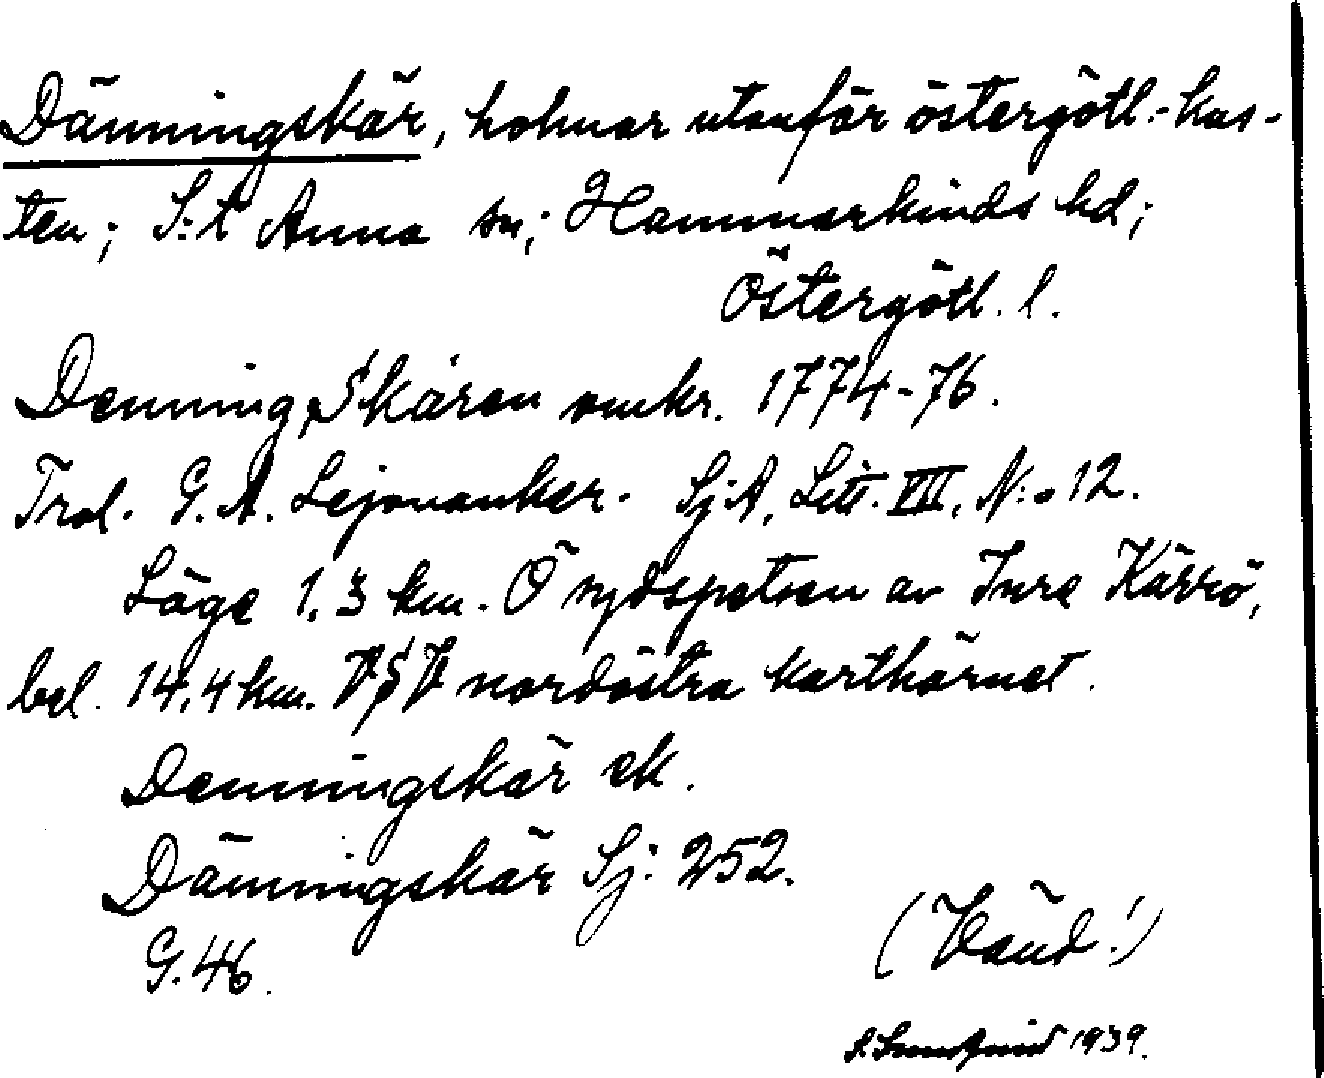 Dänningskär, holmar utanför östergötl.-kus-
ten; S:t Anna sn; Hammarkinds hd;
Östergötl. l.
Denning, Skären omkr. 1774-76.
Trol. G. A. Lejonanker. Sj.A, Litt. VII, N:o 12.
Läge 1,3 km. Ö sydspetsen av Inre Kärrö,
bel. 14,4 km. VSV nordöstra karthörnet.
Denningskär ek.
Dänningskär Sj: 252.
G. 46.
(Vänd!)
1939.